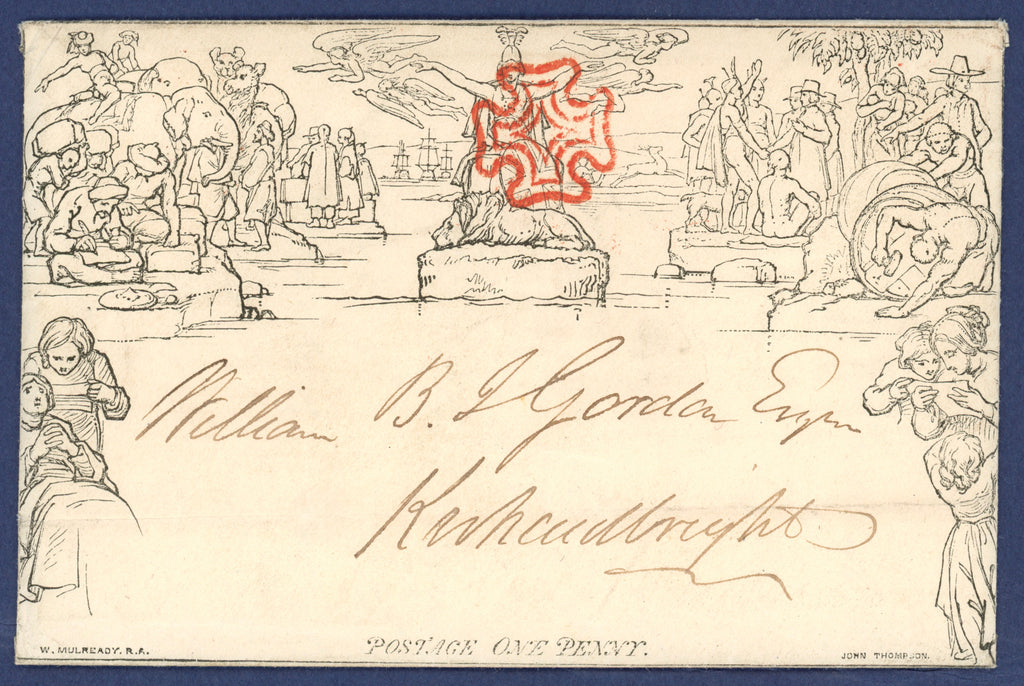 William B. I Gordon Esqre
Kirkcudbright
W. MULREADY. R.A.
POSTAGE ONE PENNY.
JOHN THOMPSON.